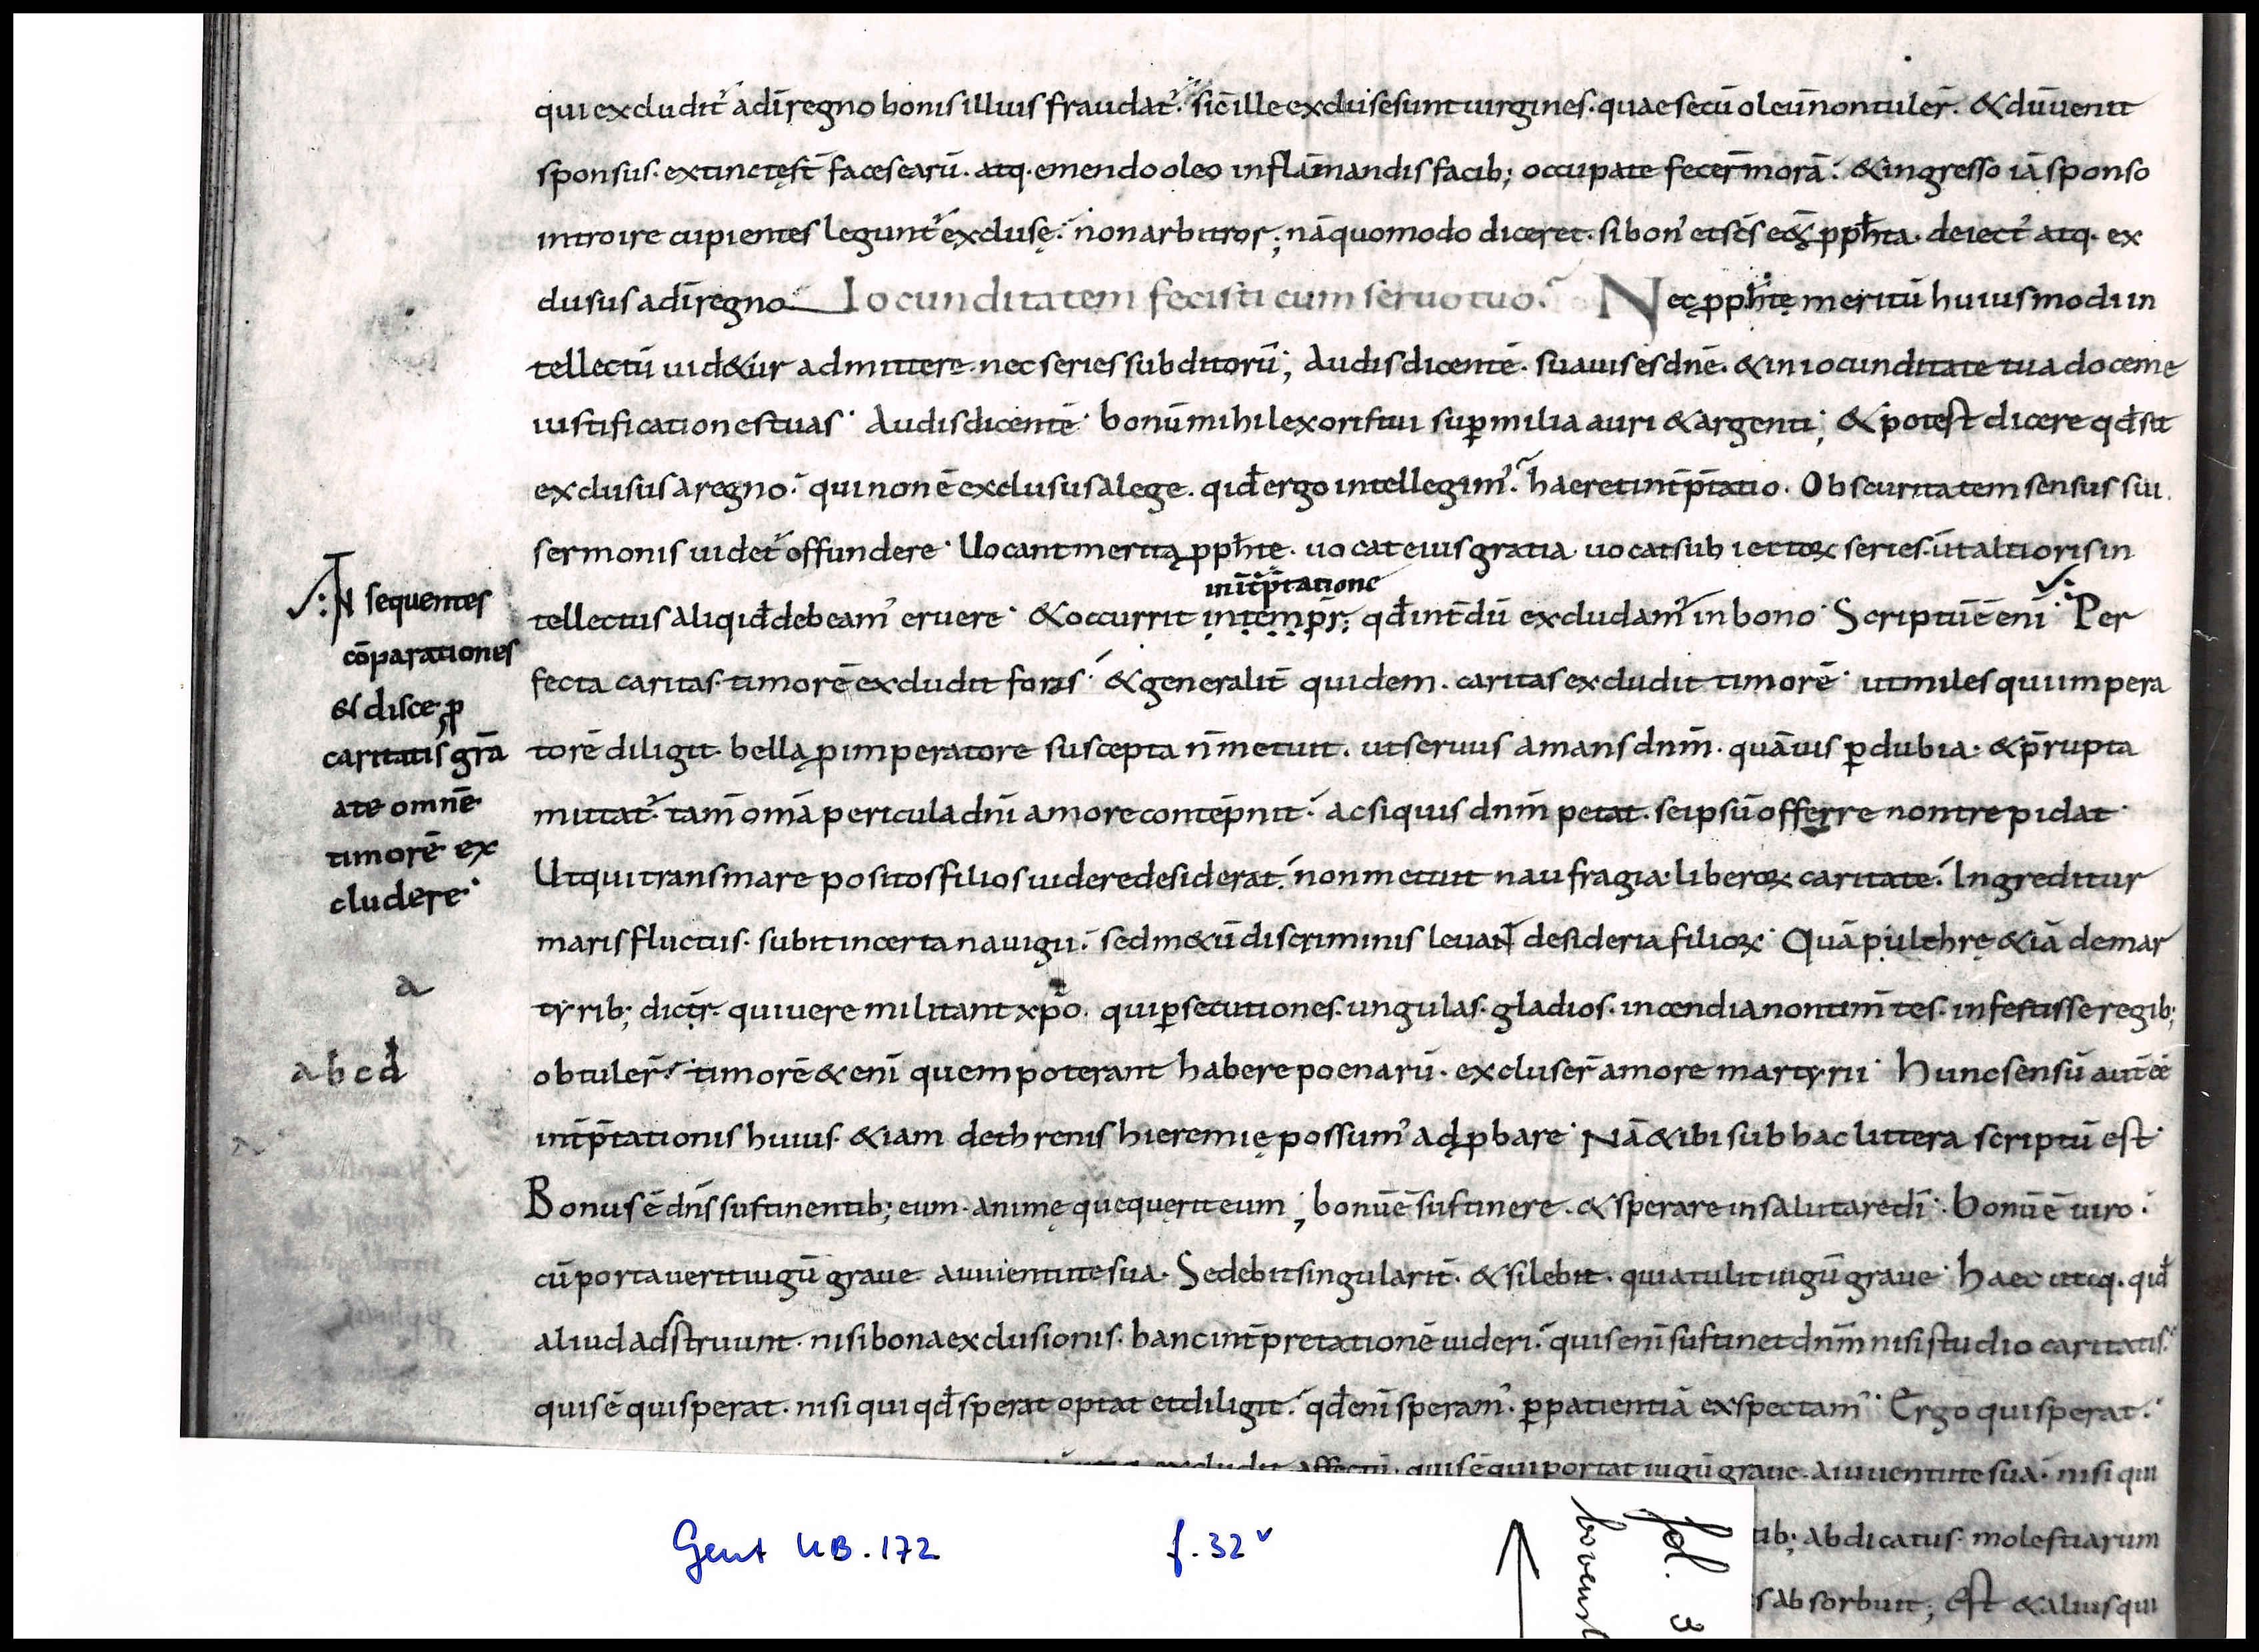 qui excludit᾽ a dī regno bonis illius fraudat᾽. sic ille excluse sunt uirgines. quae secū oleū non tuler̄. & dū uenit
sponsus. extinctę st̄ faces earū. atq. emendo oleo inflāmandis facib; occupate fecer̄ morā. & ingresso iā sponso
introire cupientes legunt᾽ excluse. non arbitror; nā quomodo diceret. si bon᾽ et sc̄s e& ꝓph̄ta. deiect᾽ atq. ex
clusus a dī regno. Iocunditatem fecisti cum seruo tuo. Nec ꝓph̄tę meritū huiusmodi in
tellectū uid&ur admittere. nec series subditorū; Audis dicentē. suauis es dn̄e. & in iocunditate tua doce me
iustificationes tuas. Audis dicentē. bonū mihi lex oris tui suꝑ milia auri & argenti; & potest dicere qd̄ sit
exclusus a regno. qui non ē exclusus a lege. qid̄ ergo intellegim᾽. haeret int̄p̄tatio. Obscuritatem sensus sui
sermonis uidet᾽ offundere. Uocant merita ꝓph̄te. uocat eius gratia. uocat subiectoꝝ series. ut altioris in
int̄p̄tatione
tellectus aliqid̄ debeam᾽ eruere. & occurrit intemp̄r; qd̄ int̄dū excludam᾽ in bono. Scriptū ē enī. Per
fecta caritas. timorē excludit foras. & generalit̄ quidem. caritas excludit timorē. ut miles qui impera
torē diligit bella ꝓ imperatore suscepta n̄ metuit. ut seruus amans dnm̄. quāuis ꝑ dubia. & p̄rupta
mittat᾽. tam̄ om̄a pericula dn̄i amore contēpnit. ac si quis dnm̄ petat. se ipsū offerre non trepidat.
Ut qui trans mare positos filios uidere desiderat. non metuit naufragia liberoꝝ caritate. Ingreditur
maris fluctus. subit incerta nauigii. sed m&ū discriminis leuant desideria filioꝝ. Quā pulchrę &iā de mar
tyrib; dicit̄. qui uere militant xp̄o. qui ꝑsecutiones. ungulas. gladios. incendia non tim̄tes. infestis se regib;
obtuler̄. timorē & enī quem poterant habere poenarū. excluser̄ amore martyrii. Hunc sensū aut̄ eē
int̄p̄tationis huius. &iam de threnis hieremię possum᾽ adꝓbare. Nā & ibi sub hac littera scriptū est.
Bonus ē dn̄s sustinentib; eum. animę que querit eum; bonū ē sustinere. & sperare in salutare dī. Bonū ē uiro.
cū portauerit iugū graue a iuuentute sua. Sedebit singularit̄. & silebit. quia tulit iugū graue. Haec utiq. qid̄
aliud adstruunt. nisi bona exclusionis. hanc int̄pretationē uideri. quis enī sustinet dnm̄ nisi studio caritatis.
quis ē qui sperat. nisi qui qd̄ sperat optat et diligit. qd̄ enī speram᾽. ꝑ patientiā exspectam᾽. Ergo qui sperat.
excludit affectū. quis ē qui portat iugū graue. a iuuentute sua. nisi qui
tib; abdicatus. molestiarum
s absorbuit; Est & alius qui
IN sequentes
cōparationes
& disce. ꝓ
caritatis gr̄a
ate omnē
timorē ex
cludere.
a
abcd
Gent UB. 172
f. 32v
fol. 3